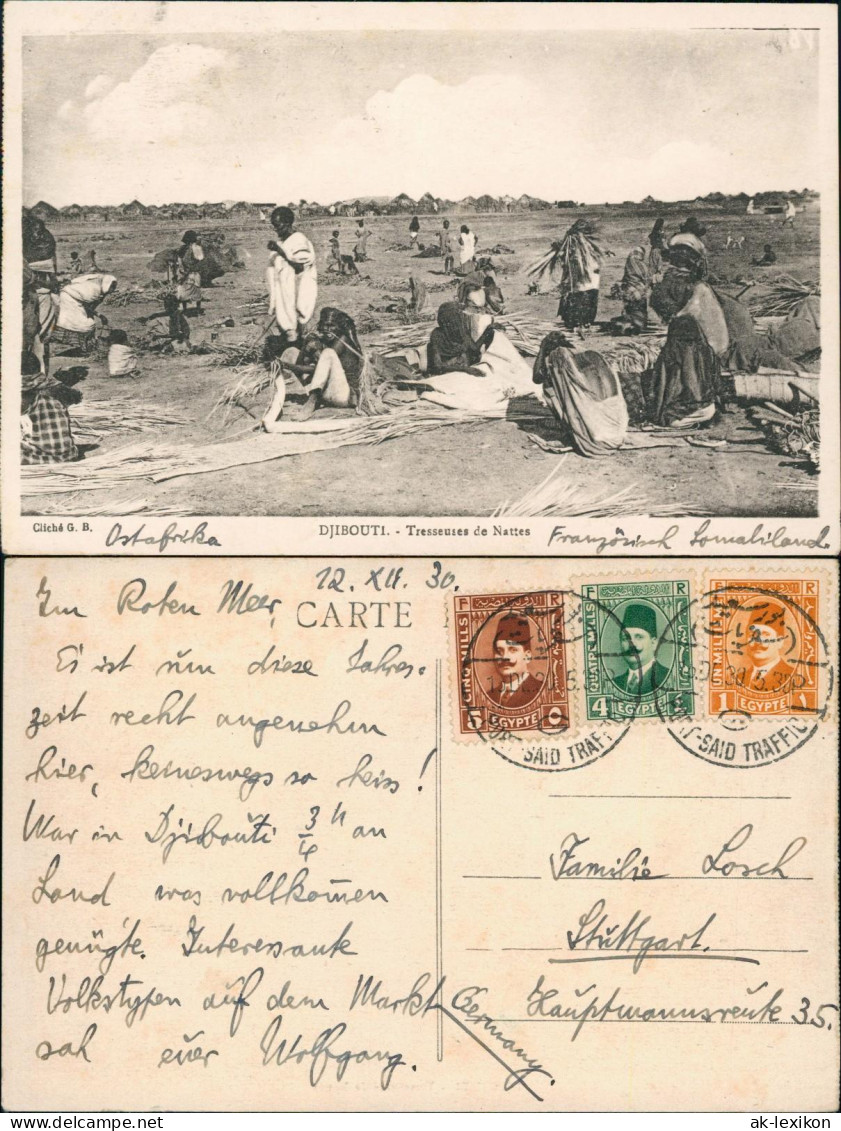 Cliché G. B.
Ostafrika
DJIBOUTI. - Tresseuses de Nattes
Französisch Somaliland.
Im Roten Meer, 12. XII. 30.
CARTE
Es ist um diese Jahres-
zeit recht angenehm
hier, keineswegs so heiss!
War in Djibouti 3/4 h an
Land was vollkom̄en
genügte. Interessante
Volkstypen auf dem Markt
sah euer Wolfgang.
F R
CINQ MILLS
EGYPTE
٥
F R
QUATRE MILLS
4 EGYPTE ٤
F R
UN MILLIEME
1 EGYPTE ١
PORT-SAID TRAFFIC
PORT-SAID TRAFFIC
Familie Losch
Stuttgart.
Hauptmannsreute 35.
Germany.
delcampe.net
ak-lexikon